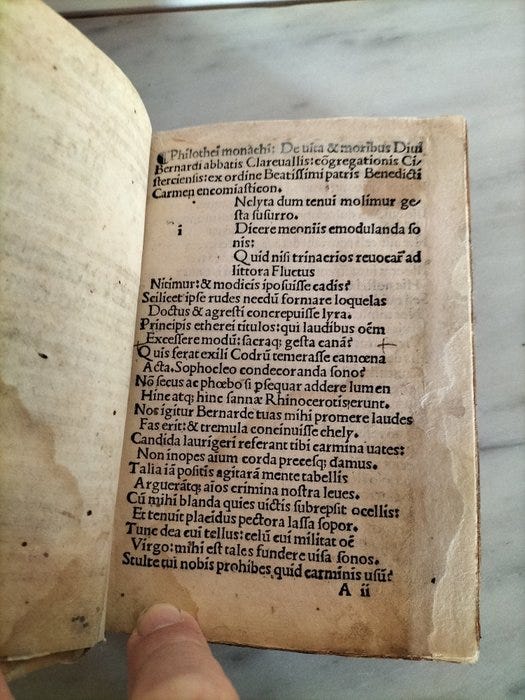 ¶Philothei monachi: De uita & moribus Diui
Bernardi abbatis Clareuallis: cōgregationis Ci/
sterciensis: ex ordine Beatissimi patris Benedicti
Carmen encomiasticon.
Nelyta dum tenui molimur ge/
sta susurro.
i
Dicere meoniis emodulanda so
nis:
Quid nisi trinacrios reuocar̄ ad
littora Fluctus
Nitimur: & modicis iposuisse cadis?
Scilicet ipse rudes needū formare loquelas
Doctus & agresti concrepuisse lyra.
Principis etherei titulos: qui laudibus oēm
Excessere modū: sacraq; gesta canā?
Quis ferat exili Codrū temerasse camœna
Acta. Sophocleo condecoranda sono?
Nō secus ac phœbo si psequar addere lumen
Hinc atq; hinc sannæ Rhinocerotis erunt.
Nos igitur Bernarde tuas mihi promere laudes
Fas erit: & tremula concinuisse chely.
Candida laurigeri referant tibi carmina uates:
Non inopes aium corda precesq; damus.
Talia iā positis agitarā mente tabellis
Arguerātq; aios crimina nostra leues.
Cū mihi blanda quies uictis subrepsit ocellis:
Et tenuit placidus pectora lassa sopor.
Tunc dea cui tellus: celū cui militat oē
Virgo: mihi est tales fundere uisa sonos.
Stulte tui nobis prohibes quid carminis usū?
A ii